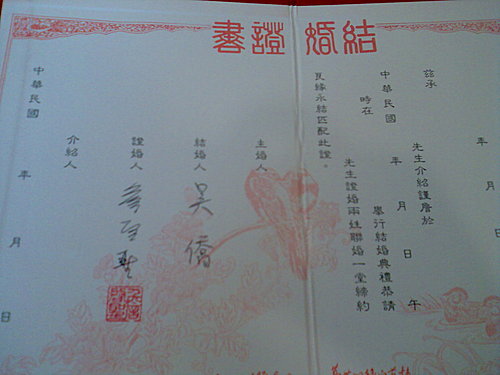 結婚證書
年 月 日
茲承 先生介紹謹詹於
中華民國 年 月 日 午
時在 舉行結婚典禮恭請
先生證婚兩姓聯婚一堂締約
良緣永結匹配此證。
主婚人
結婚人 吳僑
證婚人
介紹人
中華民國 年 月 日